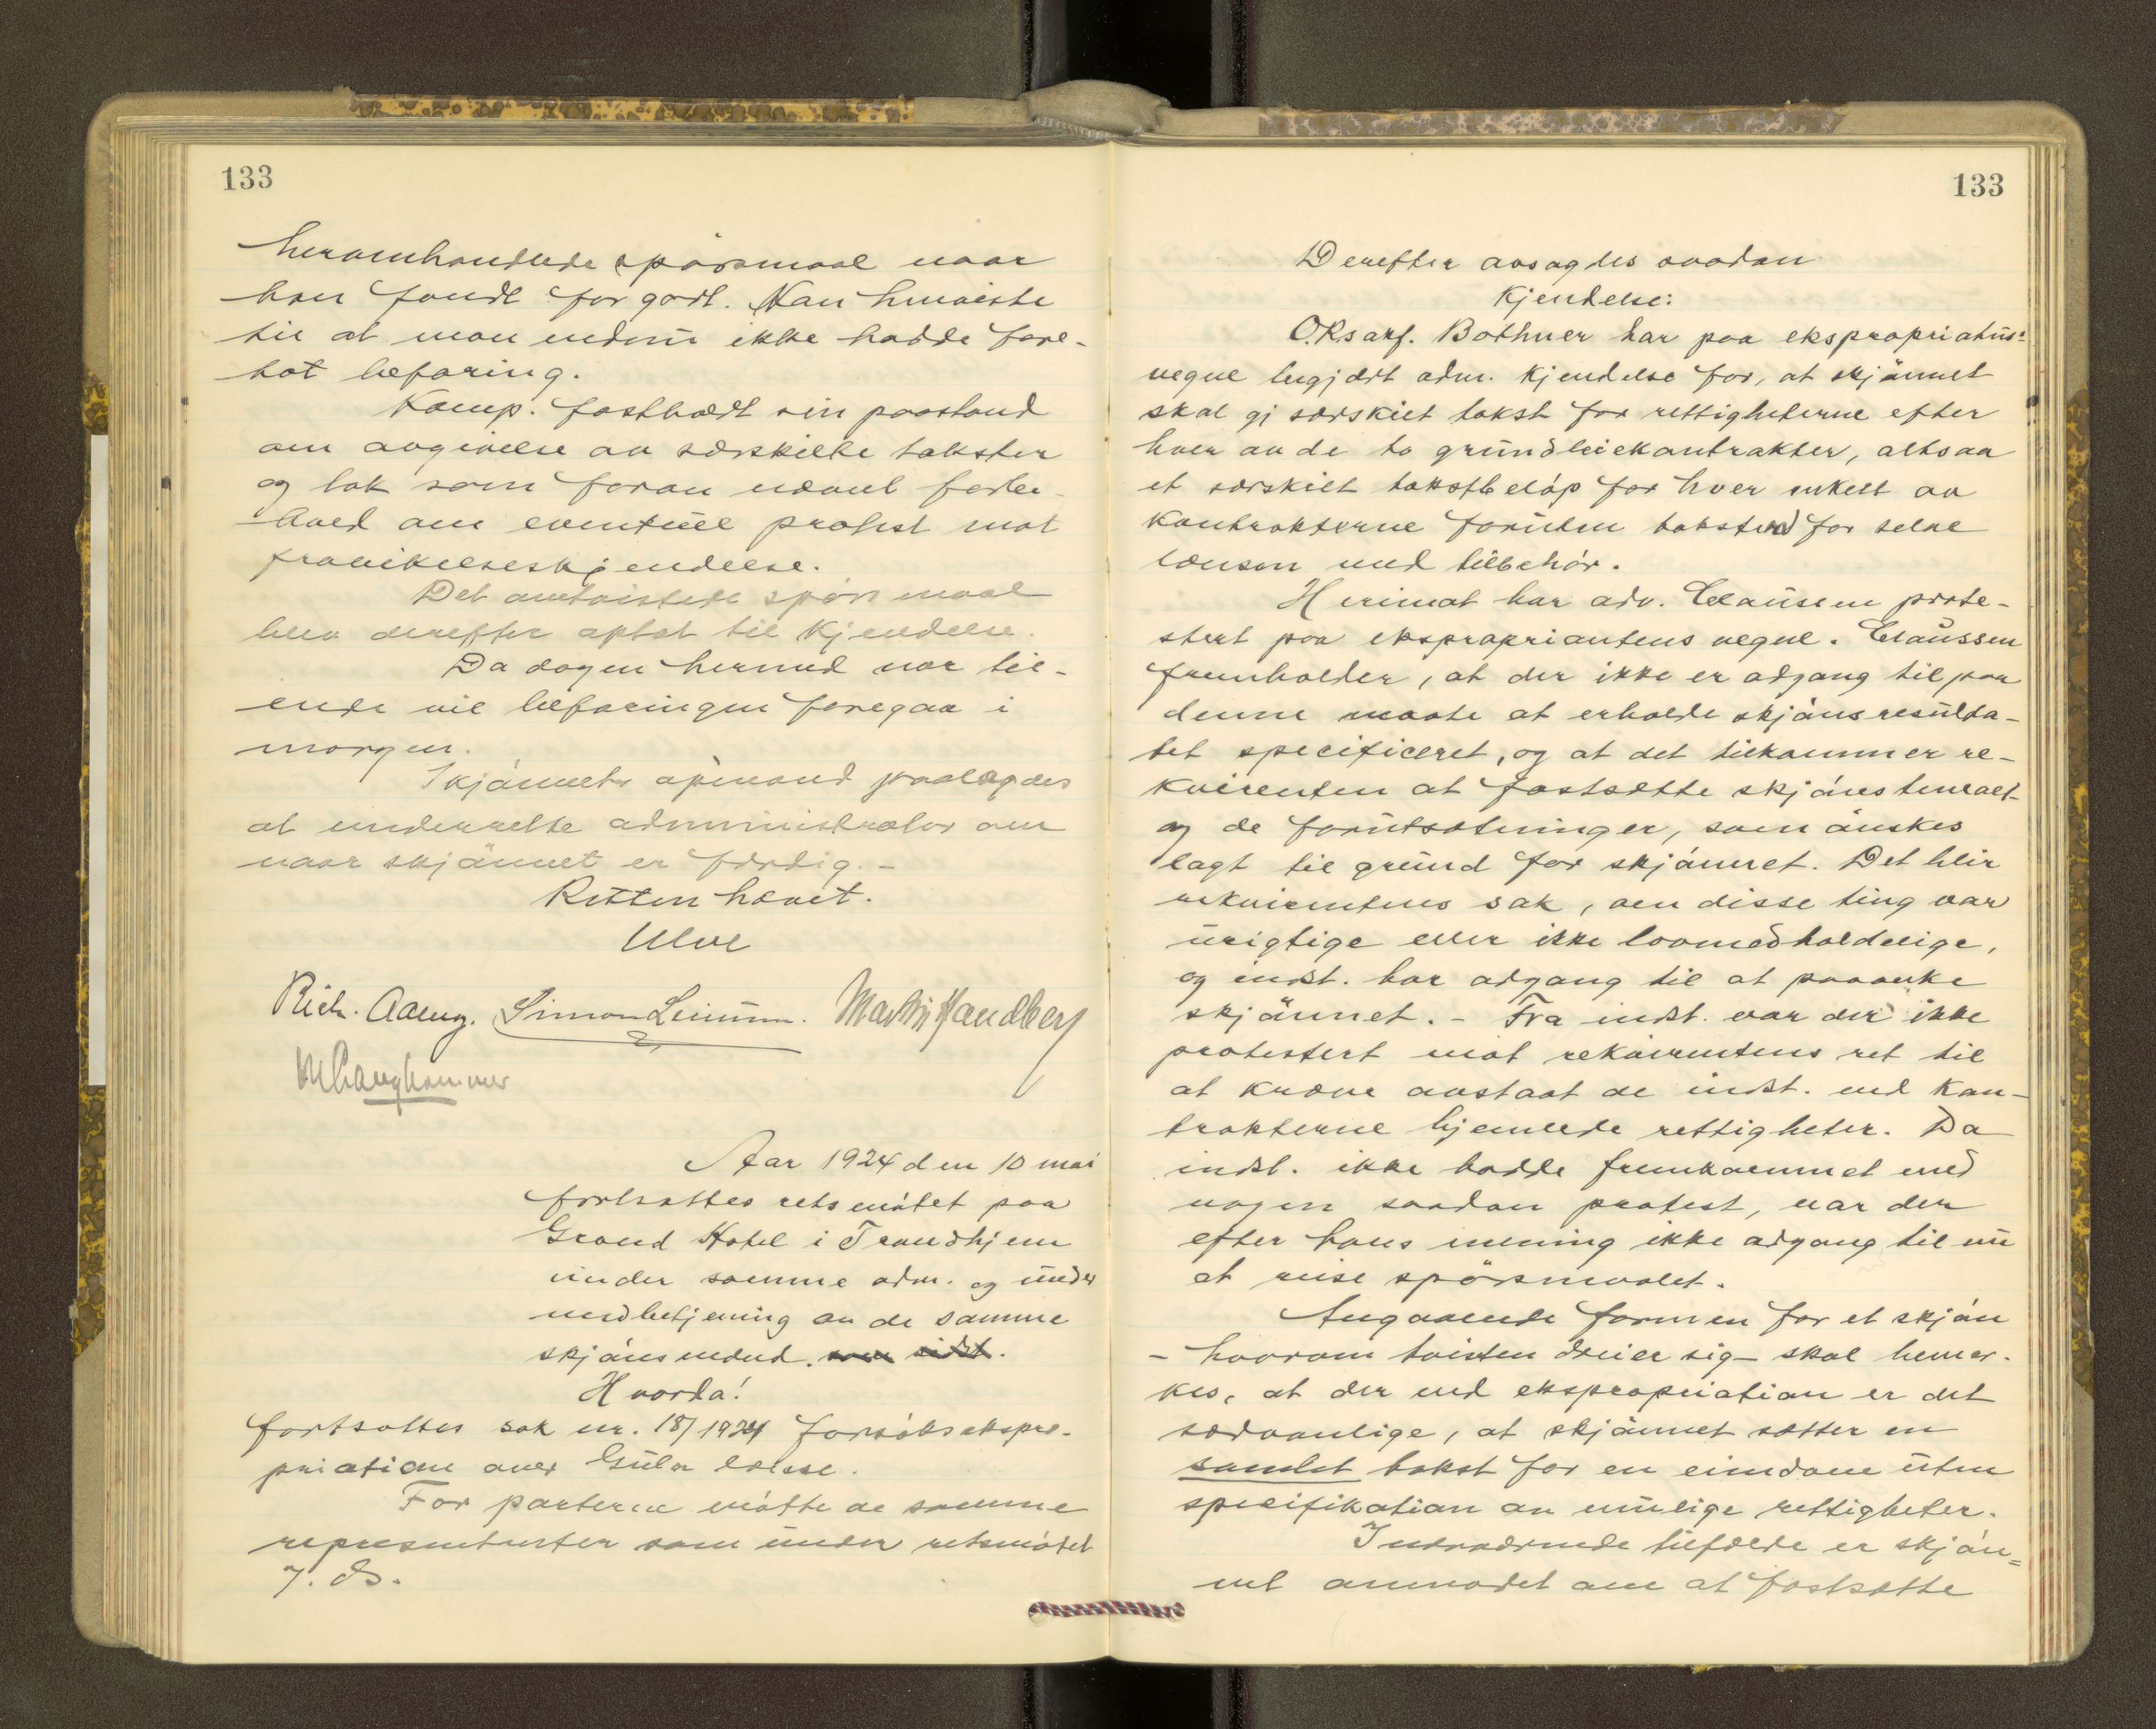 133
heromhandlede spörsmaal naar
han fandt for godt. Han henviste
til at man endnu ikke hadde fore-
tat befaring.
Komp. fastholdt sin paastand
om avgivelse av særskilte takster
og tok som foran nævnt forbe-
hold om eventuel protest mot
fravikelseskjendelse.
Det omtvistede spörsmaal
blev derefter optat til kjendelse.
Da dagen hermed var til-
ende vil befaringen foregaa i
morgen.
Skjönnets opmand paalagdes
at underrette administrator om
naar skjönnet er færdig. -
Retten hævet.
Ulve
Rich. Aaeng. Simon Martin Sandberg
M Langhammer
Aar 1924 den 10 mai
fortsattes retsmötet paa
Grand Hotel i Trondhjem
under samme adm. og under
medbetjening av de samme
skjönsmænd. som sidst.
Hvorda!
fortsattes sak nr. 18/1924 forsöksekspro-
priation over Gula lænse.
For parterne mötte de samme
representanter som under retsmötet
7. ds.
133
Derefter avsagdes saadan
Kjendelse:
O.Rsakf. Bothner har paa ekspropriatus:
vegne begjært adm. kjendelse for, at skjönnet
skal gi særskilt takst for rettigheterne efter
hver av de to grundleiekontrakter, altsaa
et særskilt takstbelöp for hver enkelt av
kontrakterne foruten taksten for selve
lænsen med tilbehör.
Herimot har adv. Claussen prote-
stert paa ekspropriantens vegne. Claussen
fremholder, at der ikke er adgang til paa
denne maate at erholde skjönsresulta-
tet specificeret, og at det tilkommer re-
kvirenten at fastsætte skjönstemaet
og de forutsætninger, som önskes
lagt til grund for skjönnet. Det blir
rekvirentens sak, om disse ting var
urigtige eller ikke lovmedholdelige,
og indst. har adgang til at paaanke
skjönnet. - Fra indst. var der ikke
protestert mot rekvirentens ret til
at kræve avstaat de indst. ved kon-
trakterne hjemlede rettigheter. Da
indst. ikke hadde fremkommet med
nogen saadan protest, var der
efter hans mening ikke adgang til nu
at reise spörsmaalet.
Angaaende formen for et skjön
- hvorom tvisten dreier sig - skal bemer-
kes, at der ved ekspropriation er det
sædvanlige, at skjönnet sætter en
samlet takst for en eiendom uten
specifikation av mulige rettigheter.
I nærværende tilfælde er skjön=
net anmodet om at fastsætte